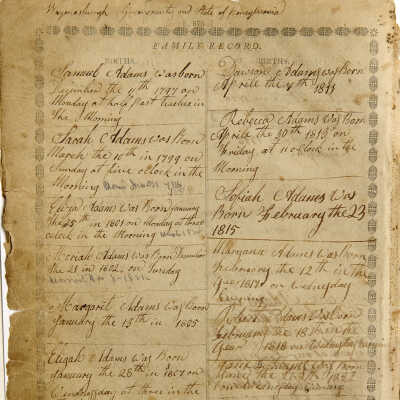 Waynesburgh Greene county and State of Pennsylvania
FAMILY RECORD.
BIRTHS.
Samuel Adams Was born
December the 11th 1797 on
Monday at half Past twelve in
The Morning
Sarah Adams Was Born
March the 10th in 1799 on
Sunday at five oClock in the
Morning
Eliza Adams Was Born January
the 25th in 1801 on Monday at three
oClock in the Morning
Adams Was Born December
the 21 in 1802 on Tuesday
Margaret Adams Was Born
January the 13th in 1805
Elijah Adams Was Born
January the 28th in 1807 on
Wednesday at three in the
BIRTHS.
Dawson Adams Was Born
Aprile the 4th 1811
Rebecca Adams Was Born
Aprile the 30th 1813 on
Friday at 11 oClock in the
Morning
Josiah Adams Was
Born February the 23
1815
Adams Was Born
February the 12th in the
Year 1817 on Wednesday
Evening
Adams Was Born
February the 18 in the
Year 1818 on Wednesday